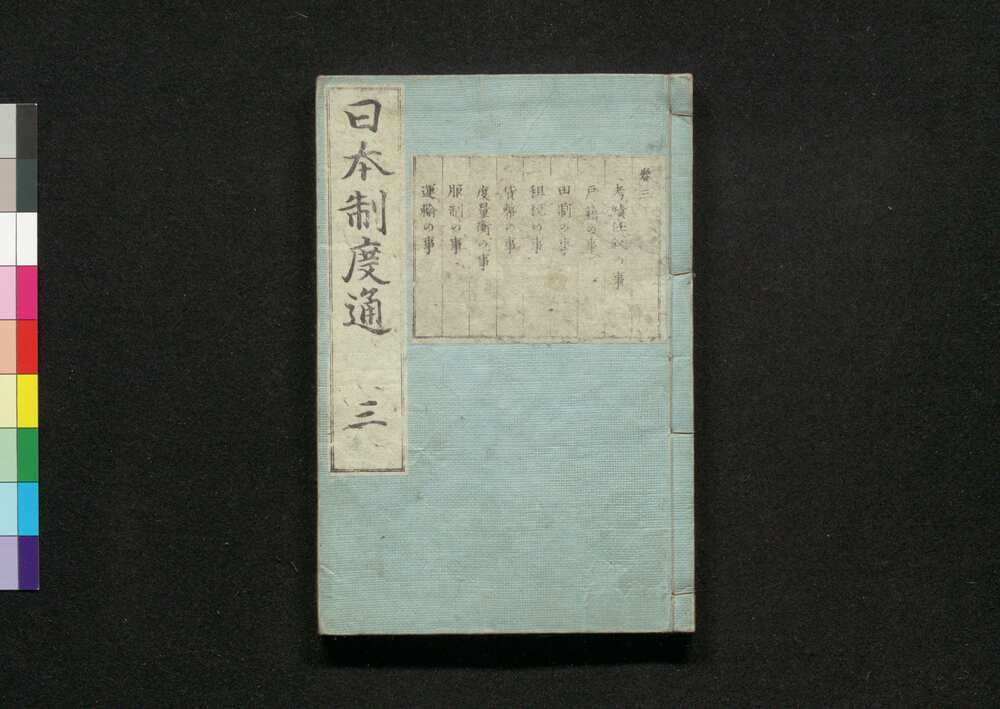 日本制度通 三
巻三
考績任叙の事
戸籍の事
田制の事
租税の事
貨幣の事
度量衡の事
服制の事
運輸の事